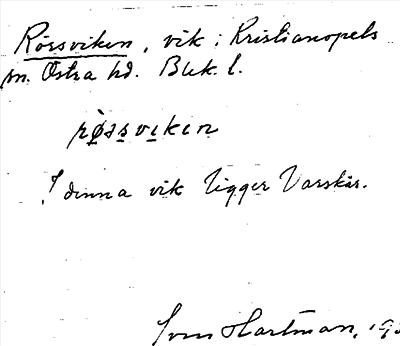 Rörsviken, vik i Kristianopels
sn. Östra hd. Blek. l.
rø̀rsvikən
I denna vik ligger Varskär.
Sven Hartman, 193